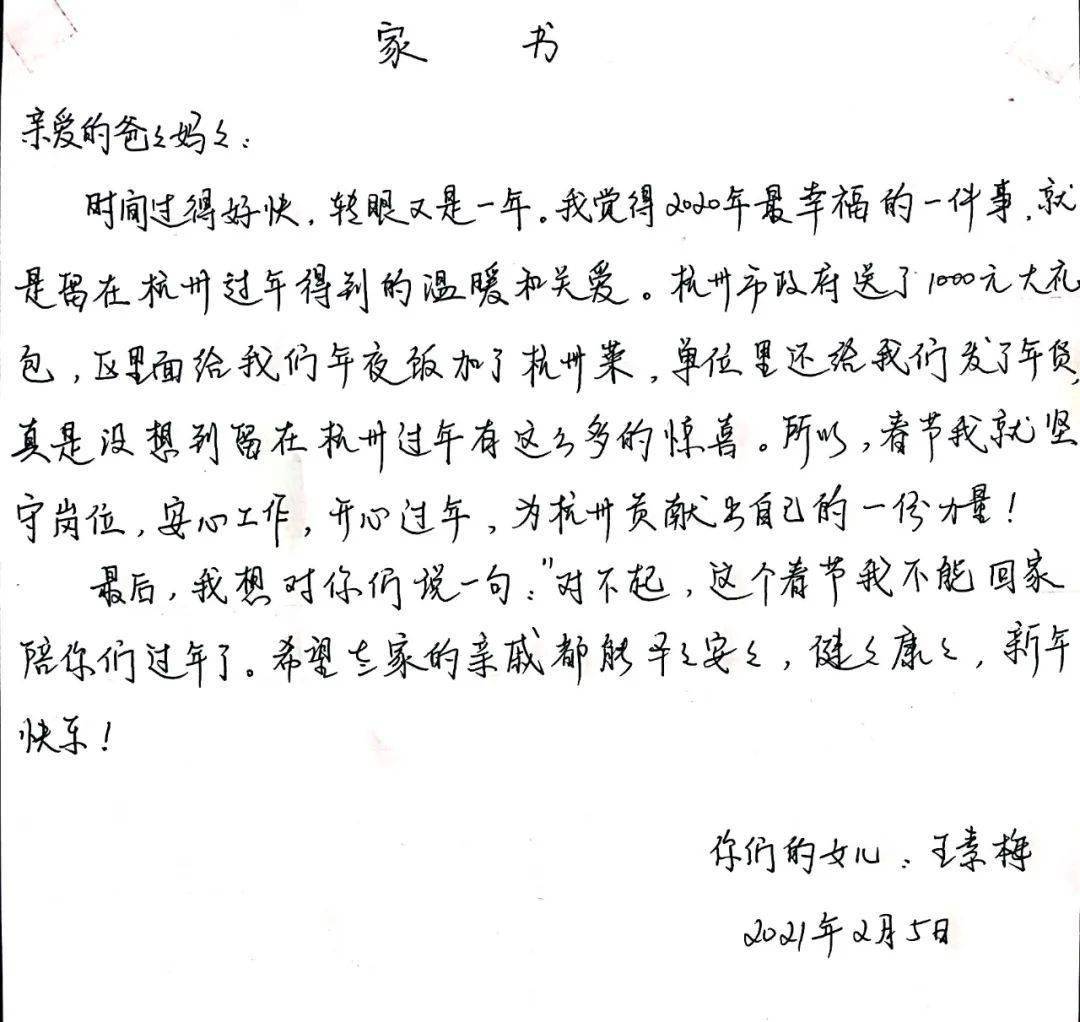 家 书
亲爱的爸々妈々：
时间过得好快，转眼又是一年。我觉得2020年最幸福的一件事，就
是留在杭州过年得到的温暖和关爱。杭州市政府送了1000元大礼
包，区里面给我们年夜饭加了杭州菜，单位里还给我们发了年货，
真是没想到留在杭州过年有这么多的惊喜。所以，春节我就坚
守岗位，安心工作，开心过年，为杭州贡献出自己的一份力量！
最后，我想对你们说一句："对不起，这个春节我不能回家
陪你们过年了。希望老家的亲戚都能平々安々，健々康々，新年
快乐！
你们的女儿：王素梅
2021年2月5日